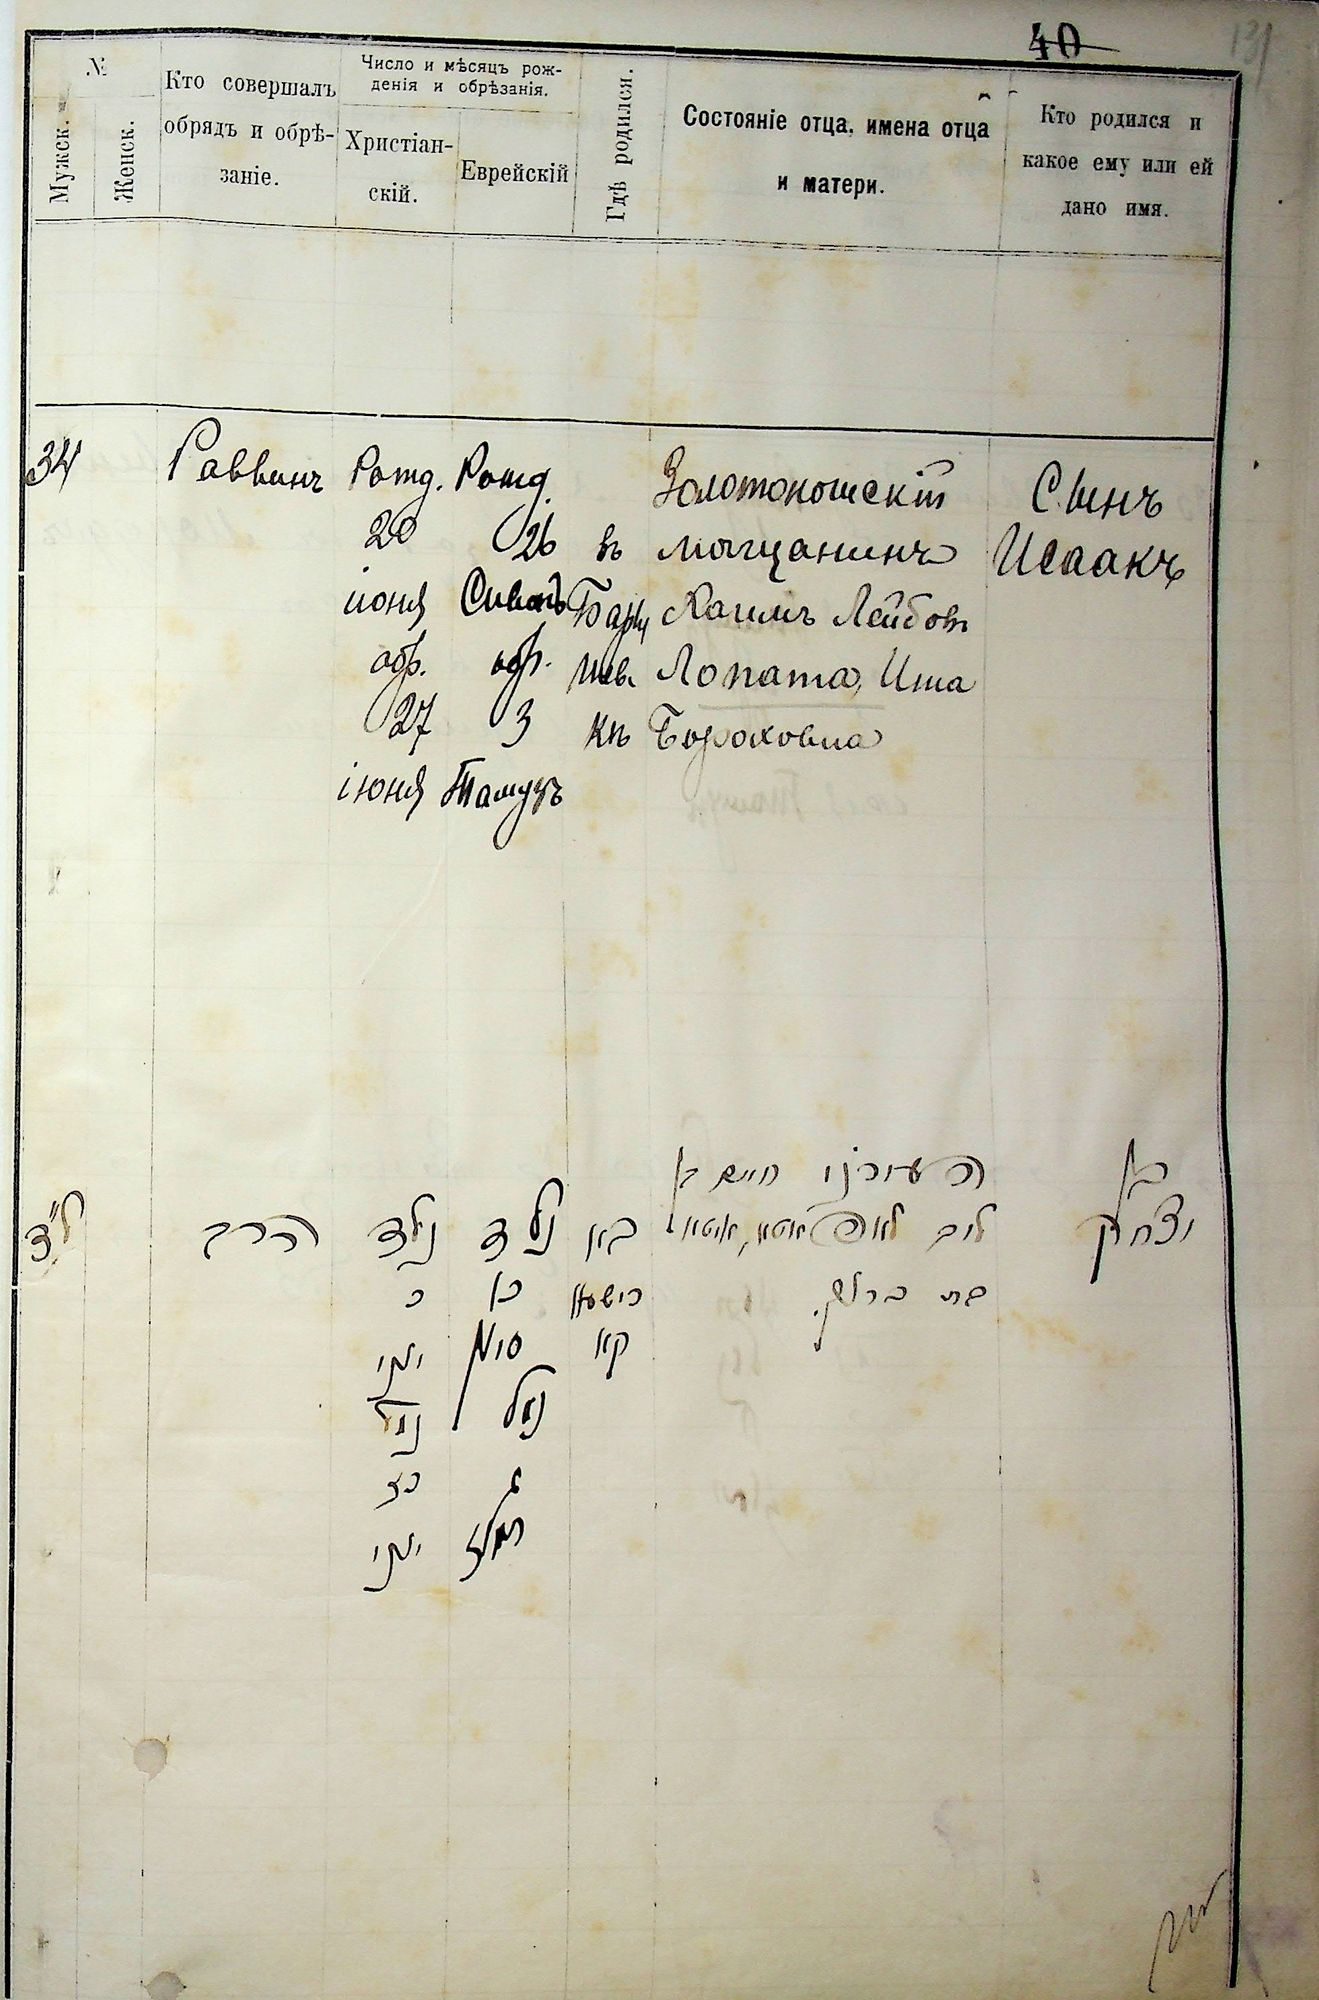 40
131
№
Мужск.
Женск.
Кто совершалъ
обрядъ и обрѣ-
заніе.
Число и мѣсяцъ рож-
денія и обрѣзанія.
Христіан-
скій.
Еврейскій
Гдѣ родился.
Состояніе отца, имена отца
и матери.
Кто родился и
какое ему или ей
дано имя.
34
Раввинъ
Рожд.
20
іюня
обр.
27
іюня
Рожд.
26
Сивонъ
обр.
3
Тамузъ
въ
Барыш
кѣ
Золотоношскій
мѣщанинъ
Хаимъ Лейбовъ
Лопата,
Бороховна
Сынъ
Исаакъ
ל״ד
הרב
נולד
כ
יוני
נימול
כז
יוני
נולד
סיון
נימול
ג
תמוז
קא
חיים בן
ליב
בת ברוך.
בן
יצחק